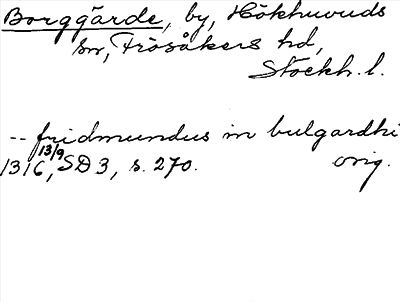 Borggärde, by, Hökhuvuds
sn, Frösåkers hd,
Stockh. l.
-- fridmundus in bulgardhi
1316 13/9, SD 3, s. 270. orig.